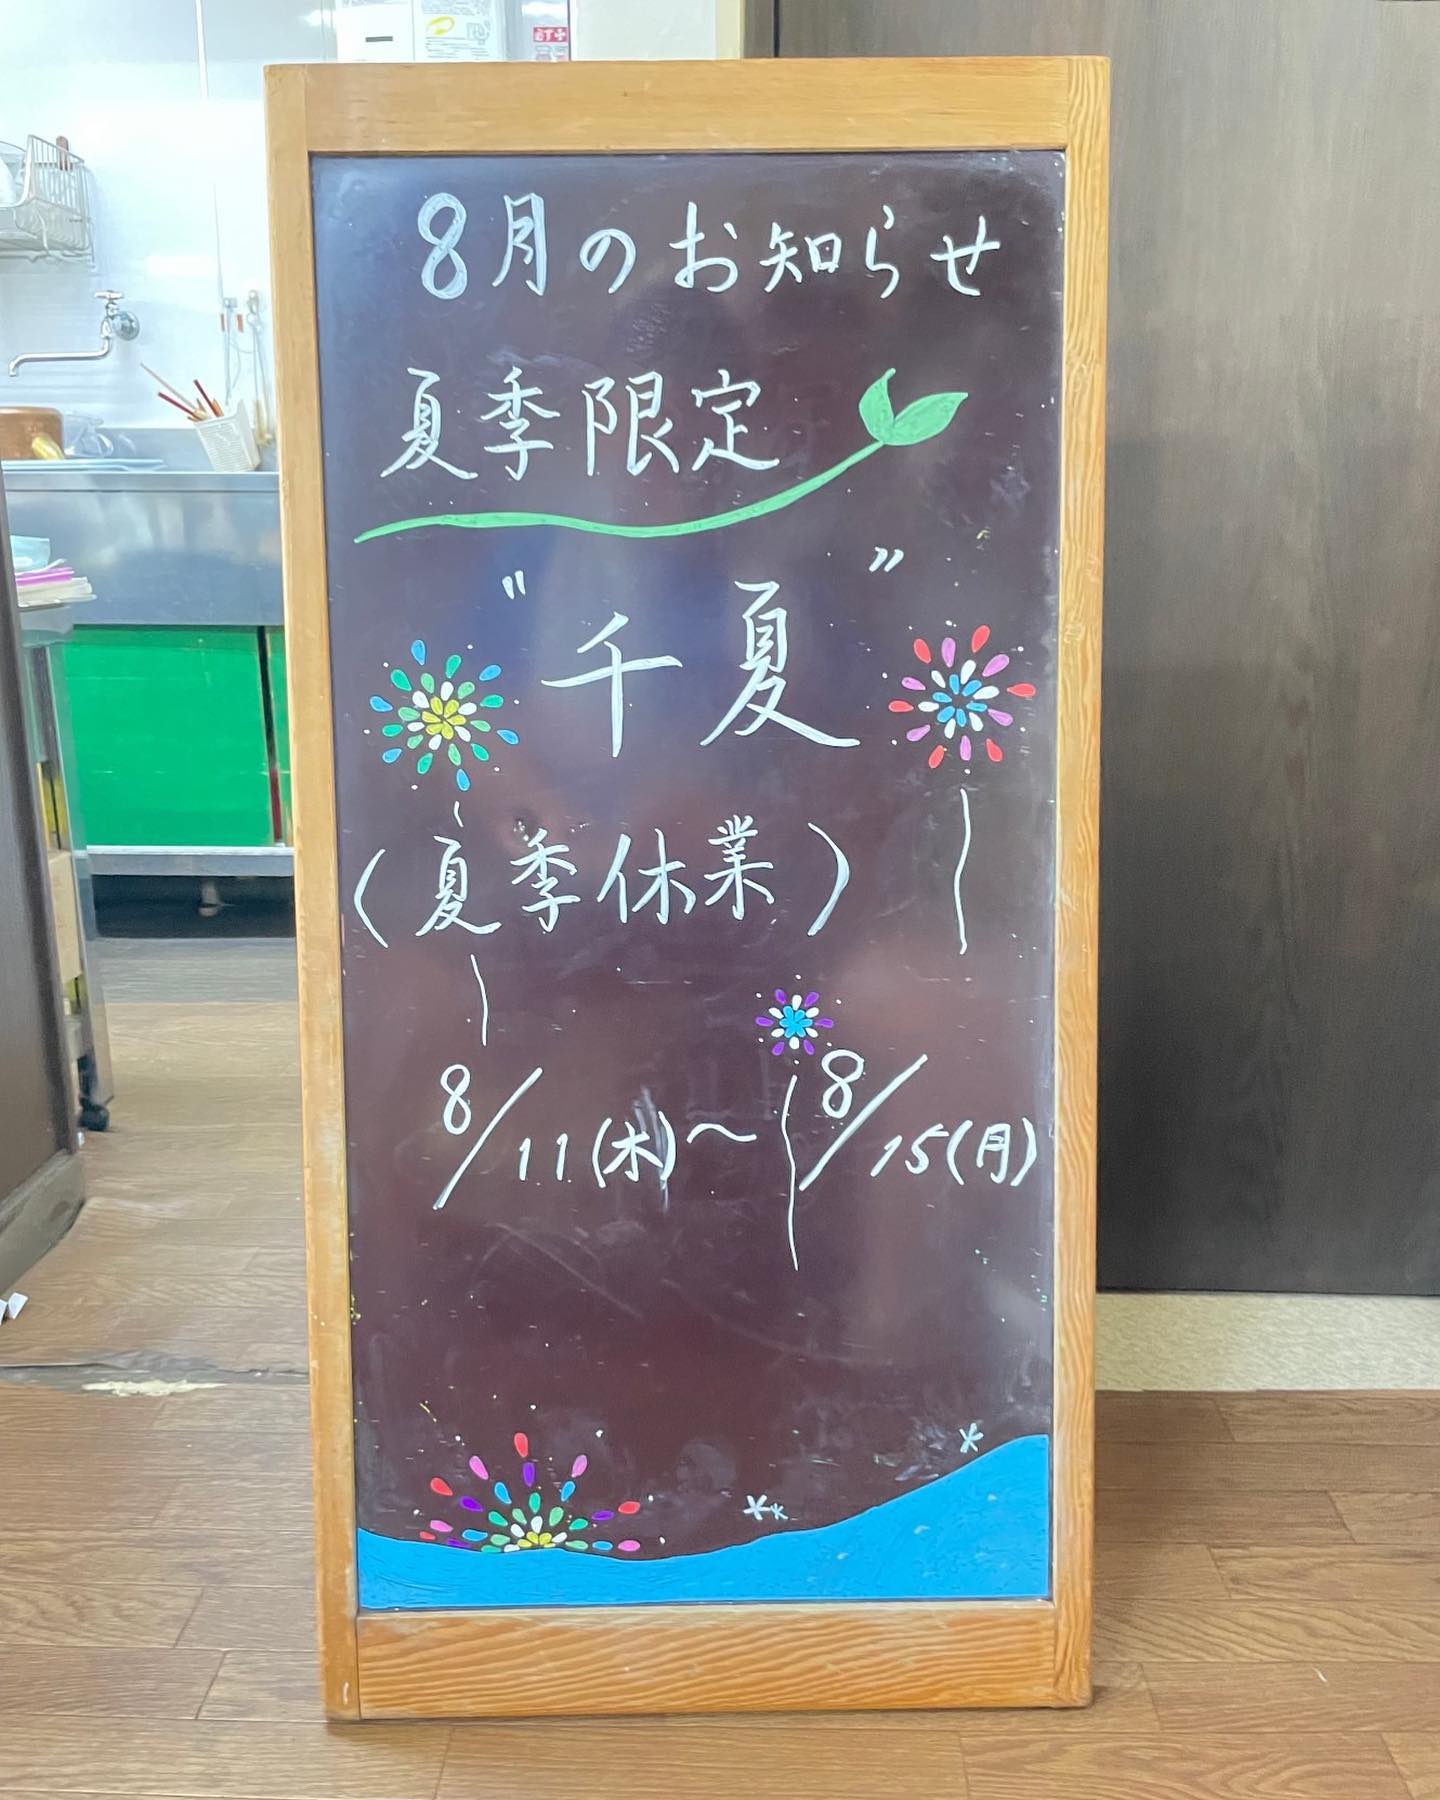 必ず
8月のお知らせ
夏季限定
"千夏"
(夏季休業)
8/11(木)～8/15(月)